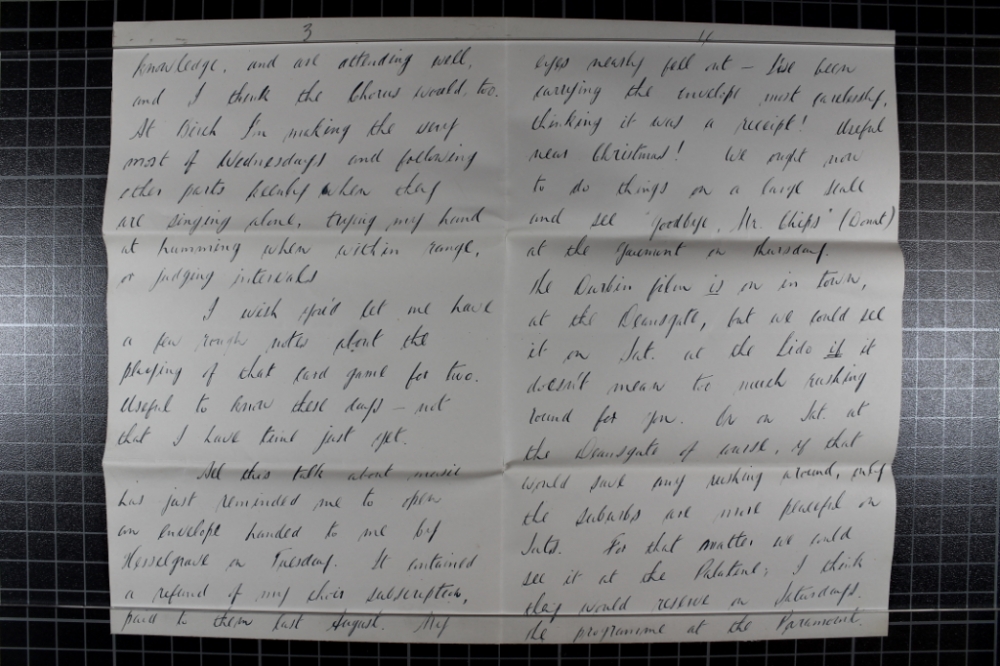 3
knowledge, and are attending well,
and I think the Chorus would, too.
At Birch I'm making the very
most of Wednesdays and following
other parts keenly when they
are singing alone, trying my hand
at humming when within range,
or judging intervals
I wish you'd let me have
a few rough notes about the
playing of that card game for two.
Useful to know these days — not
that I have time just yet.
All this talk about music
has just reminded me to open
an envelope handed to me by
Hesselgrave on Tuesday. It contained
a refund of my choir subscription,
paid to them last August. My
4
eyes nearly fell out — I've been
carrying the envelope most carelessly,
thinking it was a receipt! Useful
near Christmas! We ought now
to do things on a large scale
and see "Goodbye, Mr. Chips" (Donat)
at the Gaumont on Thursday.
The Durbin film is on in town,
at the Deansgate, but we could see
it on Sat. at the Lido if it
doesn't mean too much rushing
round for you. Or on Sat. at
the Deansgate of course, if that
would save any rushing around, only
the suburbs are more peaceful on
Sats. For that matter we could
see it at the Palatine; I think
they would reserve on Saturdays.
The programme at the Paramount